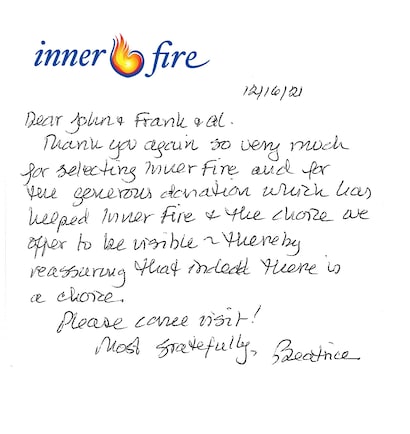 inner fire
12/16/21
Dear John & Frank & al.
Thank you again so very much
for selecting Inner Fire and for
the generous donation which has
helped Inner Fire & the choice we
offer to be visible ~ thereby
reassuring that indeed there is
a choice.
Please come visit!
Most gratefully, Beatrice